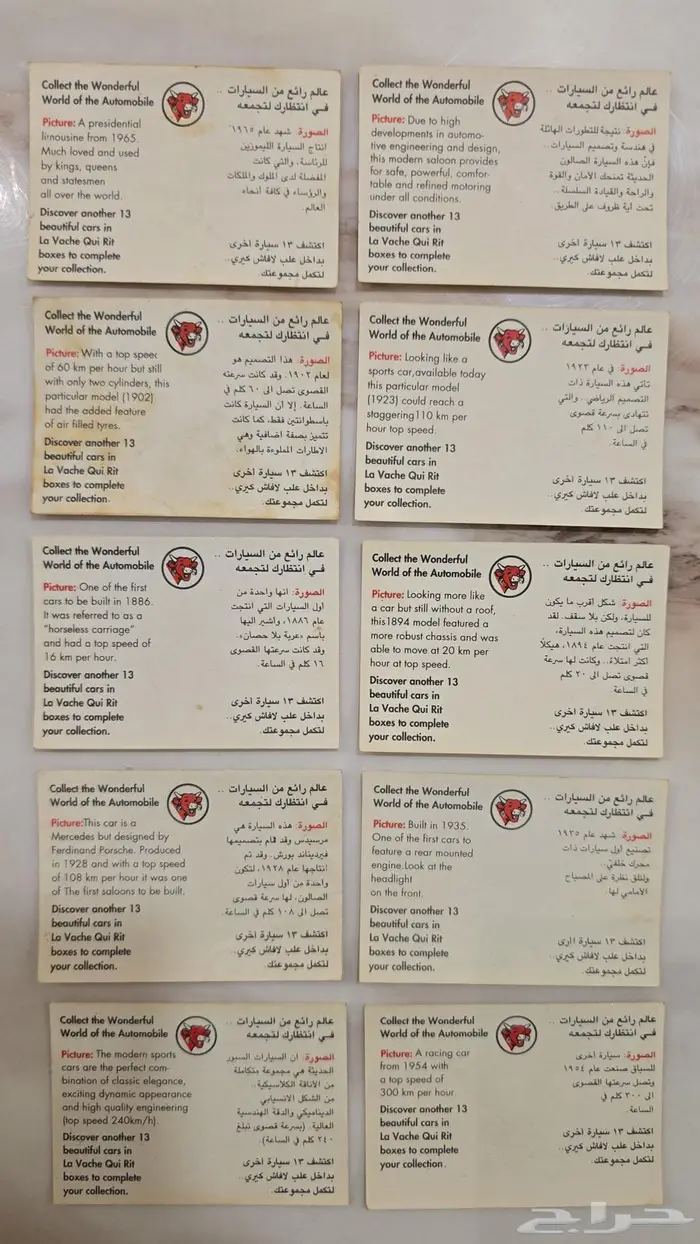 Collect the Wonderful
World of the Automobile
Picture: A presidential
limousine from 1965.
Much loved and used
by kings, queens
and statesmen
all over the world.
Discover another 13
beautiful cars in
La Vache Qui Rit
boxes to complete
your collection.
عالم رائع من السيارات ..
في انتظارك لتجمعه
الصورة: شهد عام ١٩٦٥
انتاج السيارة الليموزين
للرئاسة، والتي كانت
المفضلة لدى الملوك والملكات
والرؤساء في كافة أنحاء
العالم.
اكتشف ١٣ سيارة اخرى
بداخل علب لافاش كيري..
لتكمل مجموعتك.
Collect the Wonderful
World of the Automobile
Picture: Due to high
developments in automo-
tive engineering and design,
this modern saloon provides
for safe, powerful, comfor-
table and refined motoring
under all conditions.
Discover another 13
beautiful cars in
La Vache Qui Rit
boxes to complete
your collection.
عالم رائع من السيارات ..
في انتظارك لتجمعه
الصورة: نتيجة للتطورات الهائلة
في هندسة وتصميم السيارات..
فإنّ هذه السيارة الصالون
الحديثة تمنحك الأمان والقوة
والراحة والقيادة السلسلة..
تحت أية ظروف على الطريق.
اكتشف ١٣ سيارة اخرى
بداخل علب لافاش كيري..
لتكمل مجموعتك.
Collect the Wonderful
World of the Automobile
Picture: With a top speed
of 60 km per hour but still
with only two cylinders, this
particular model (1902)
had the added feature
of air filled tyres.
Discover another 13
beautiful cars in
La Vache Qui Rit
boxes to complete
your collection.
عالم رائع من السيارات ..
في انتظارك لتجمعه
الصورة: هذا التصميم هو
لعام ١٩٠٢. وقد كانت سرعته
القصوى تصل الى ٦٠ كلم في
الساعة. إلا أن السيارة كانت
باسطوانتين فقط، كما كانت
تتميز بصفة اضافية وهي
الاطارات المملوءة بالهواء.
اكتشف ١٣ سيارة اخرى
بداخل علب لافاش كيري..
لتكمل مجموعتك.
Collect the Wonderful
World of the Automobile
Picture: Looking like a
sports car,available today
this particular model
(1923) could reach a
staggering110 km per
hour top speed.
Discover another 13
beautiful cars in
La Vache Qui Rit
boxes to complete
your collection.
عالم رائع من السيارات ..
في انتظارك لتجمعه
الصورة: في عام ١٩٢٣
تأتي هذه السيارة ذات
التصميم الرياضي.. والتي
تتهادى بسرعة قصوى
تصل الى ١١٠ كلم
في الساعة.
اكتشف ١٣ سيارة اخرى
بداخل علب لافاش كيري..
لتكمل مجموعتك.
Collect the Wonderful
World of the Automobile
Picture: One of the first
cars to be built in 1886.
It was referred to as a
"horseless carriage"
and had a top speed of
16 km per hour.
Discover another 13
beautiful cars in
La Vache Qui Rit
boxes to complete
your collection.
عالم رائع من السيارات ..
في انتظارك لتجمعه
الصورة: انها واحدة من
أول السيارات التي انتجت
عام ١٨٨٦، واشير اليها
باسم «عربة بلا حصان».
وقد كانت سرعتها القصوى
١٦ كلم في الساعة.
اكتشف ١٣ سيارة اخرى
بداخل علب لافاش كيري..
لتكمل مجموعتك.
Collect the Wonderful
World of the Automobile
Picture: Looking more like
a car but still without a roof,
this1894 model featured a
more robust chassis and was
able to move at 20 km per
hour at top speed.
Discover another 13
beautiful cars in
La Vache Qui Rit
boxes to complete
your collection.
عالم رائع من السيارات ..
في انتظارك لتجمعه
الصورة: شكل اقرب ما يكون
للسيارة، ولكن بلا سقف. لقد
كان لتصميم هذه السيارة،
التي انتجت عام ١٨٩٤، هيكلاً
اكثر امتلاءً.. وكانت لها سرعة
قصوى تصل الى ٢٠ كلم
في الساعة.
اكتشف ١٣ سيارة اخرى
بداخل علب لافاش كيري..
لتكمل مجموعتك.
Collect the Wonderful
World of the Automobile
Picture:This car is a
Mercedes but designed by
Ferdinand Porsche. Produced
in 1928 and with a top speed
of 108 km per hour it was one
of The first saloons to be built.
Discover another 13
beautiful cars in
La Vache Qui Rit
boxes to complete
your collection.
عالم رائع من السيارات ..
في انتظارك لتجمعه
الصورة: هذه السيارة هي
مرسيدس وقد قام بتصميمها
فيرديناند بورش. وقد تم
انتاجها عام ١٩٢٨، لتكون
واحدة من اول سيارات
الصالون، لها سرعة قصوى
تصل الى ١٠٨ كلم في الساعة.
اكتشف ١٣ سيارة اخرى
بداخل علب لافاش كيري..
لتكمل مجموعتك.
Collect the Wonderful
World of the Automobile
Picture: Built in 1935.
One of the first cars to
feature a rear mounted
engine.Look at the
headlight
on the front.
Discover another 13
beautiful cars in
La Vache Qui Rit
boxes to complete
your collection.
عالم رائع من السيارات ..
في انتظارك لتجمعه
الصورة: شهد عام ١٩٣٥
تصنيع أول سيارات ذات
محرك خلفيّ..
ولنلق نظرة على المصباح
الأمامي لها.
اكتشف ١٣ سيارة اخرى
بداخل علب لافاش كيري..
لتكمل مجموعتك.
Collect the Wonderful
World of the Automobile
Picture: The modern sports
cars are the perfect com-
bination of classic elegance,
exciting dynamic appearance
and high quality engineering
(top speed 240km/h).
Discover another 13
beautiful cars in
La Vache Qui Rit
boxes to complete
your collection.
عالم رائع من السيارات ..
في انتظارك لتجمعه
الصورة: ان السيارات السبور
الحديثة هي مجموعة متكاملة
من الأناقة الكلاسيكية..
من الشكل الانسيابي
الديناميكي والدقة الهندسية
العالية. (بسرعة قصوى تبلغ
٢٤٠ كلم في الساعة).
اكتشف ١٣ سيارة اخرى
بداخل علب لافاش كيري..
لتكمل مجموعتك.
Collect the Wonderful
World of the Automobile
Picture: A racing car
from 1954 with
a top speed of
300 km per hour
Discover another 13
beautiful cars in
La Vache Qui Rit
boxes to complete
your collection.
عالم رائع من السيارات ..
في انتظارك لتجمعه
الصورة: سيارة اخرى
للسباق صنعت عام ١٩٥٤
وتصل سرعتها القصوى
الى ٣٠٠ كلم في
الساعة.
اكتشف ١٣ سيارة اخرى
بداخل علب لافاش كيري..
لتكمل مجموعتك.
حراج